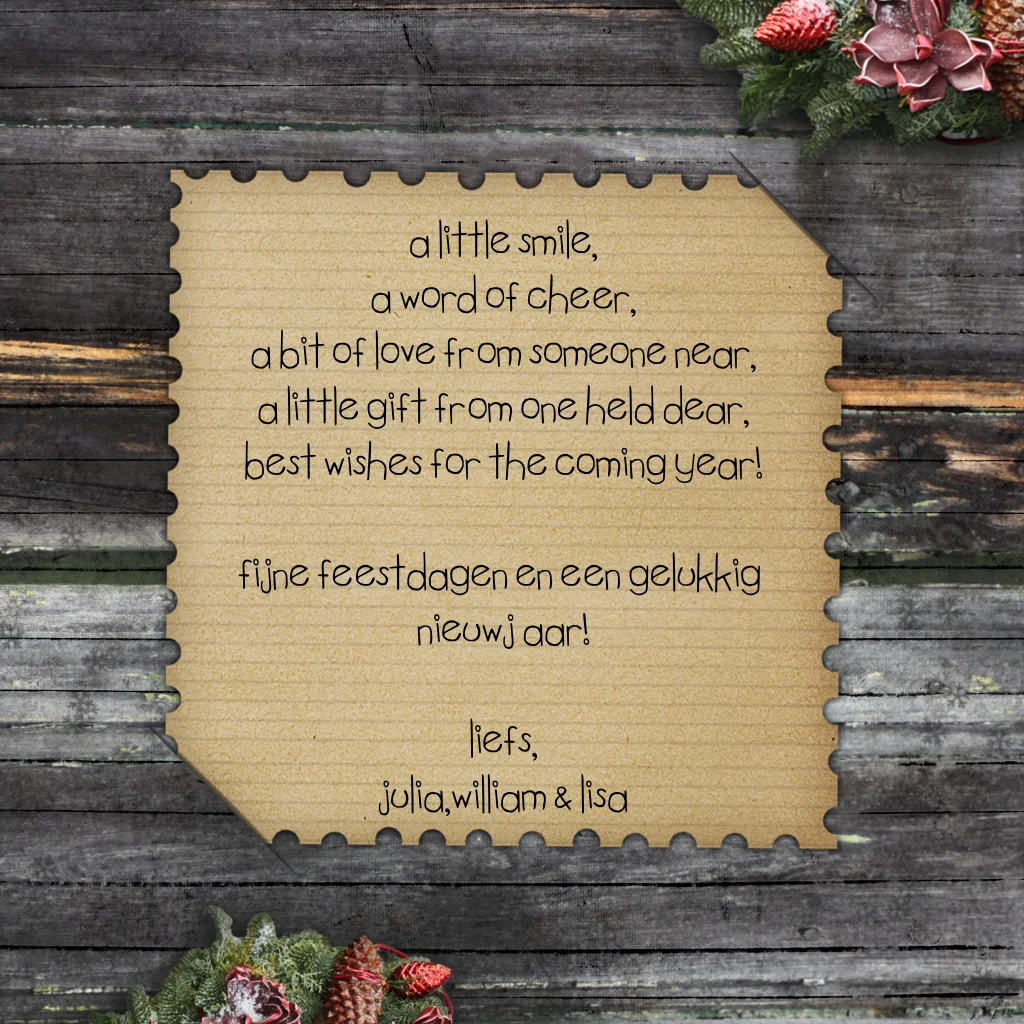 a little smile,
a word of cheer,
a bit of love from someone near,
a little gift from one held dear,
best wishes for the coming year!
fijne feestdagen en een gelukkig
nieuwjaar!
liefs,
julia,william & lisa